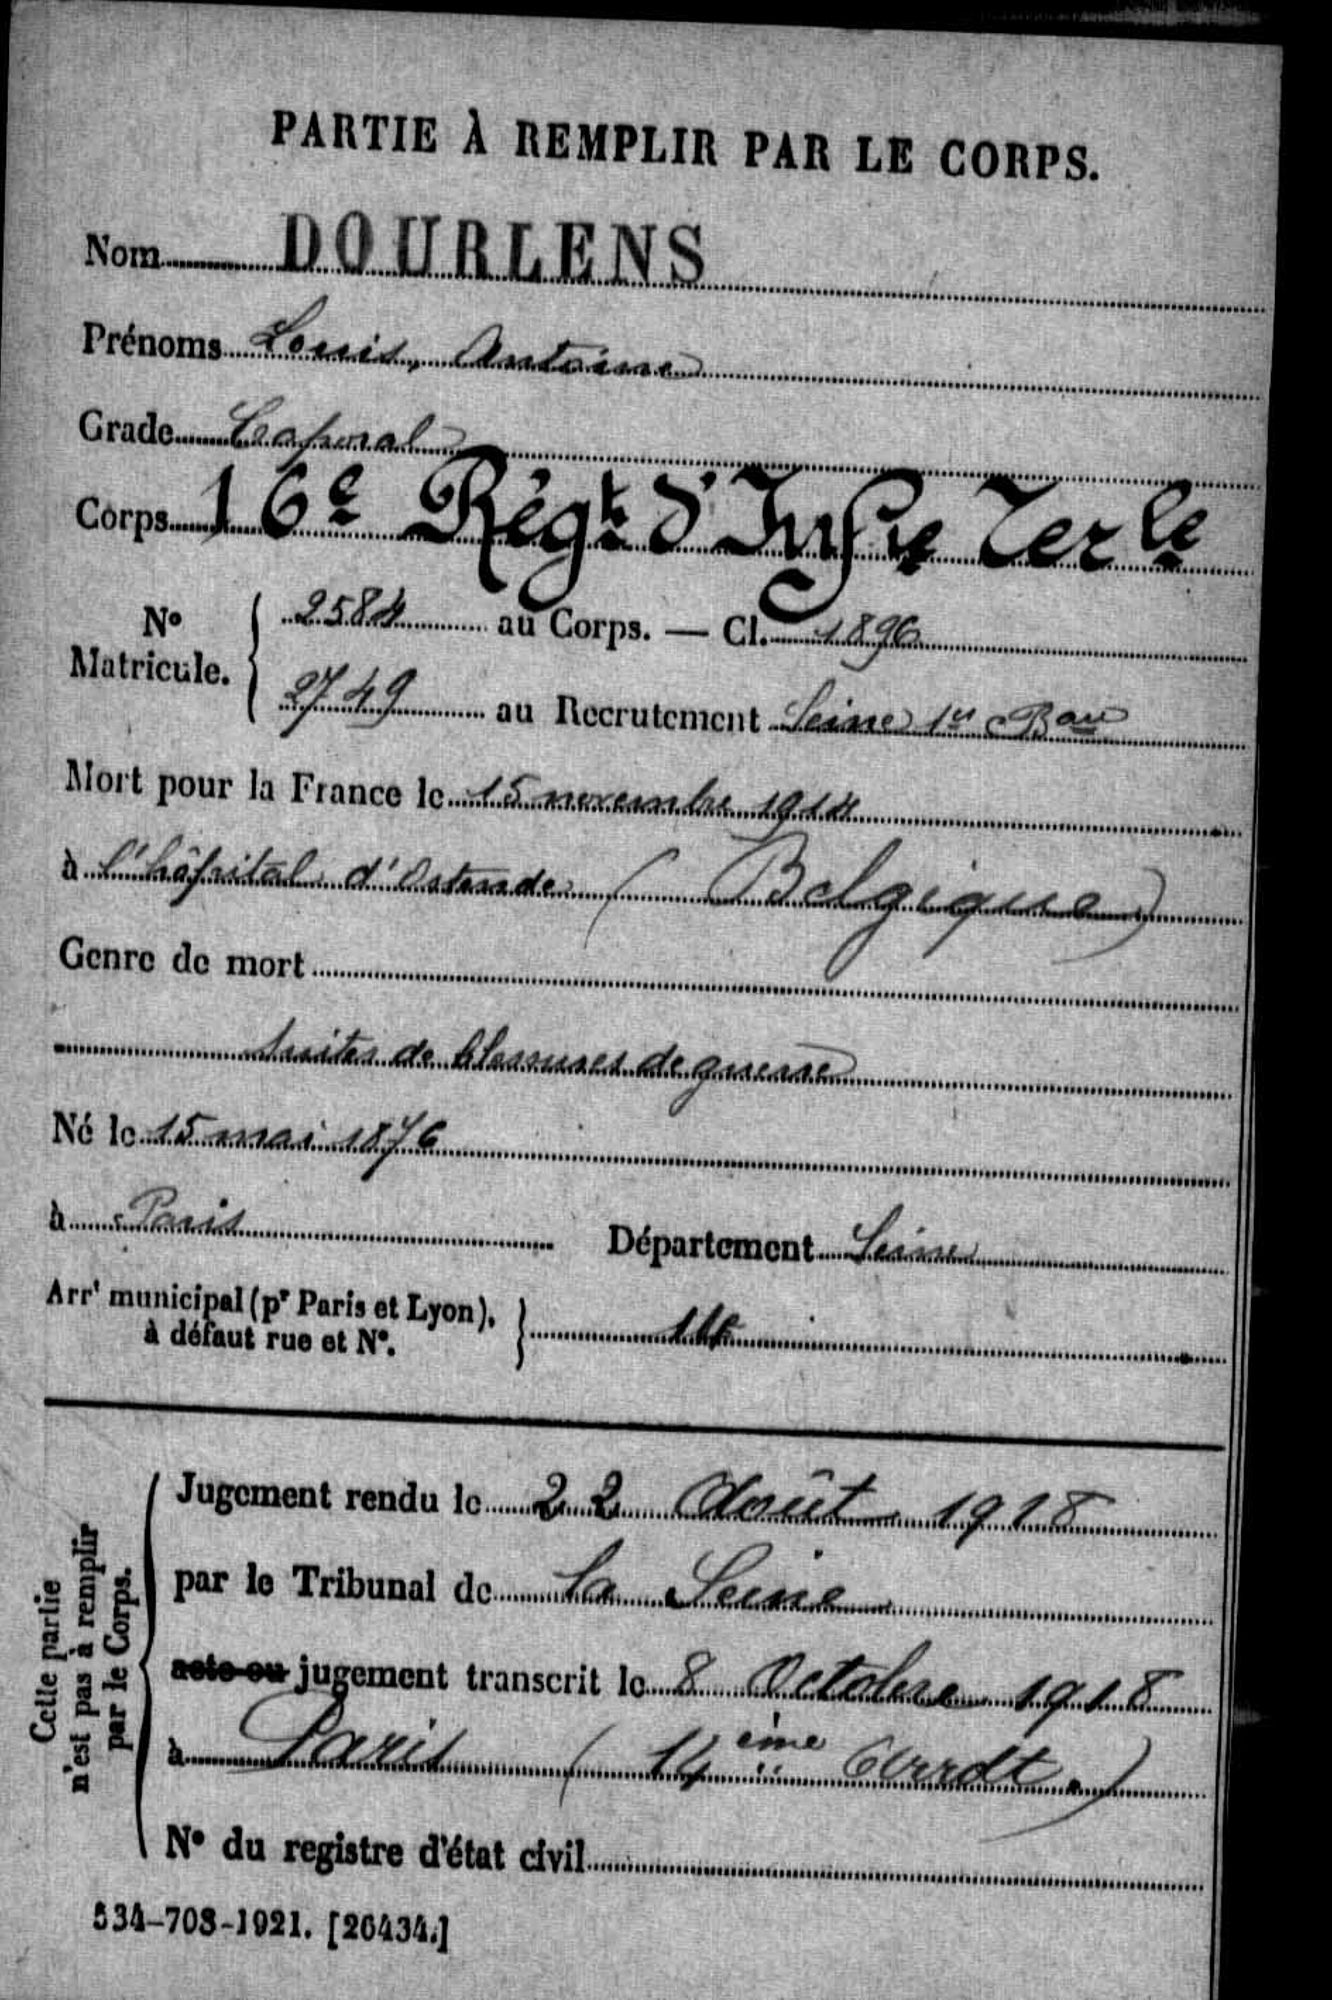 PARTIE À REMPLIR PAR LE CORPS.
Nom DOURLENS
Prénoms Louis, Antoine
Grade Caporal
Corps 16e Régt d'Infie Terle
No Matricule. { 2584 au Corps. — Cl. 1896
2749 au Recrutement Seine 1er Bau
Mort pour la France le 15 novembre 1914
à l'hôpital d'Ostende (Belgique)
Genre de mort
suites de blessures de guerre
Né le 15 mai 1876
à Paris Département Seine
Arrt municipal (pr Paris et Lyon), à défaut rue et No. }
Cette partie n'est pas à remplir par le Corps.
Jugement rendu le 22 Août 1918
par le Tribunal de la Seine
acte ou jugement transcrit le 8 Octobre 1918
à Paris (14ème Arrdt.)
No du registre d'état civil
534-708-1921. [26434.]